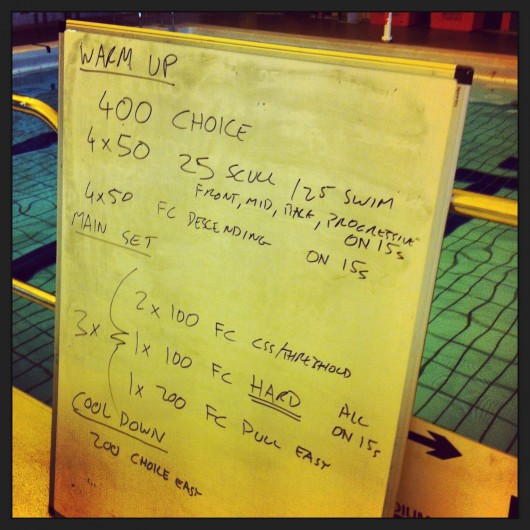 WARM UP
400 CHOICE
4x50 25 SCULL / 25 SWIM
FRONT, MID, BACK, PROGRESSIVE
ON 15s
4x50 FC DESCENDING ON 15s
MAIN SET
3x { 2x100 FC CSS/THRESHOLD
1x100 FC HARD ALL
1x200 FC PULL EASY ON 15s
COOL DOWN
200 CHOICE EASY